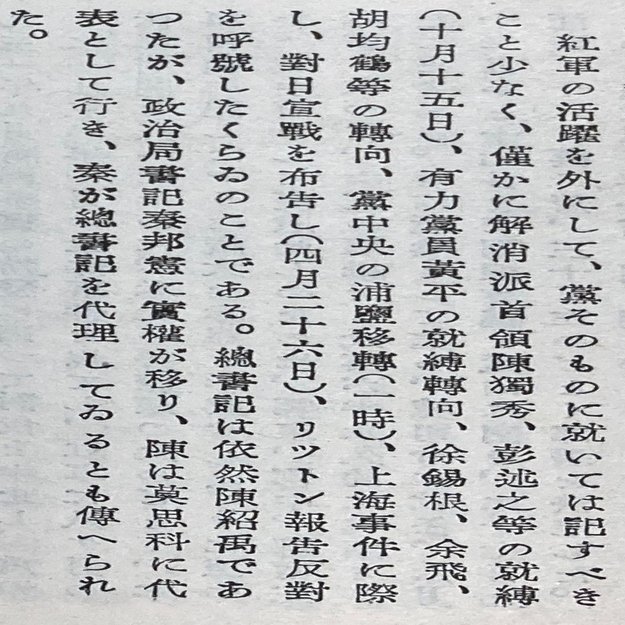 紅軍の活躍を外にして、黨そのものに就いては記すべき
こと少なく、僅かに解消派首領陳獨秀、彭述之等の就縛
(十月十五日)、有力黨員黃平の就縛轉向、徐錫根、余飛、
胡均鶴等の轉向、黨中央の浦鹽移轉(一時)、上海事件に際
し、對日宣戰を布告し(四月二十六日)、リットン報告反對
を呼號したくらゐのことである。總書記は依然陳紹禹であ
つたが、政治局書記秦邦憲に實權が移り、陳は莫思科に代
表として行き、秦が總書記を代理してゐるとも傳へられ
た。